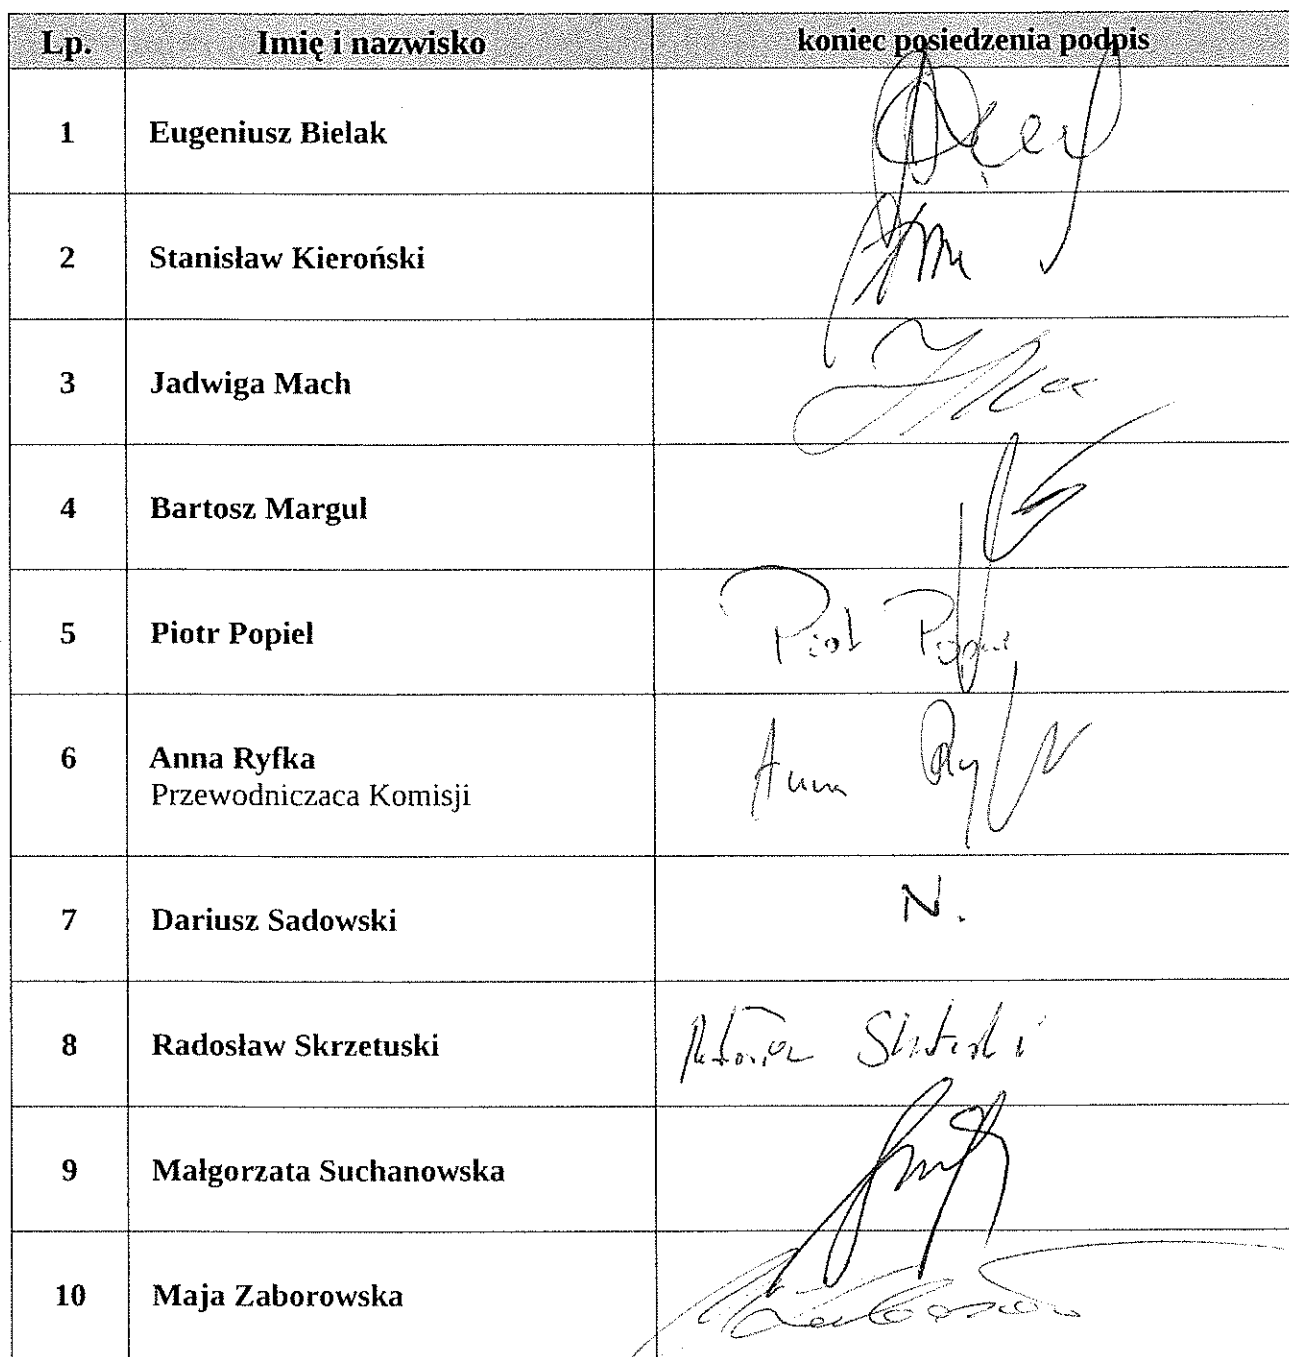 Lp. Imię i nazwisko koniec posiedzenia podpis
1 Eugeniusz Bielak
2 Stanisław Kieroński
3 Jadwiga Mach
4 Bartosz Margul
5 Piotr Popiel Piotr
6 Anna Ryfka Anna
Przewodniczaca Komisji
7 Dariusz Sadowski N.
8 Radosław Skrzetuski
9 Małgorzata Suchanowska
10 Maja Zaborowska